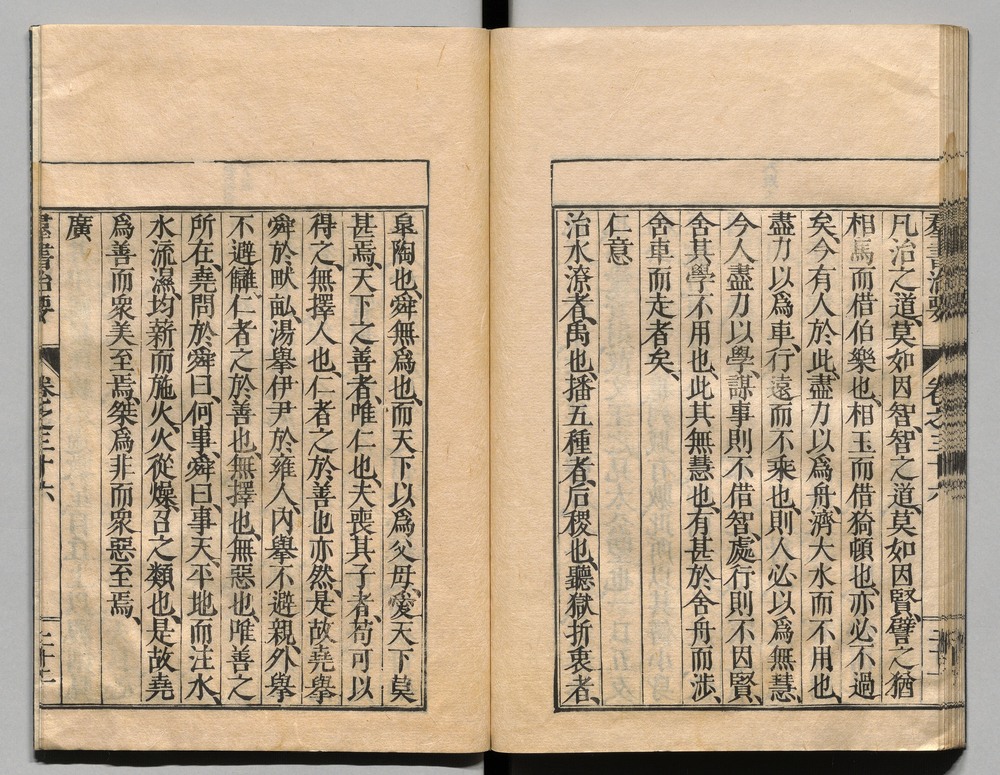 羣書治要 卷之三十六
凡治之道、莫如因智、智之道、莫如因賢、譬之猶
相馬而借伯樂也、相玉而借猗頓也、亦必不過
矣、今有人於此、盡力以爲舟、濟大水而不用也、
盡力以爲車、行遠而不乘也、則人必以爲無慧、
今人盡力以學、謀事則不借智、處行則不因賢、
舍其學不用也、此其無慧也、有甚於舍舟而涉、
舍車而走者矣、
仁意
治水潦者、禹也、播五種者、后稷也、聽獄折衷者、
皐陶也、舜無爲也、而天下以爲父母、愛天下莫
甚焉、天下之善者、唯仁也、夫喪其子者、苟可以
得之、無擇人也、仁者之於善也亦然、是故堯擧
舜於畎畝、湯擧伊尹於雍人、內擧不避親、外擧
不避讎、仁者之於善也、無擇也、無惡也、唯善之
所在、堯問於舜曰、何事、舜曰、事天、平地而注水、
水流濕、均薪而施火、火從燥、召之類也、是故堯
爲善而衆美至焉、桀爲非而衆惡至焉、
廣
羣書治要 卷之三十六 二十二